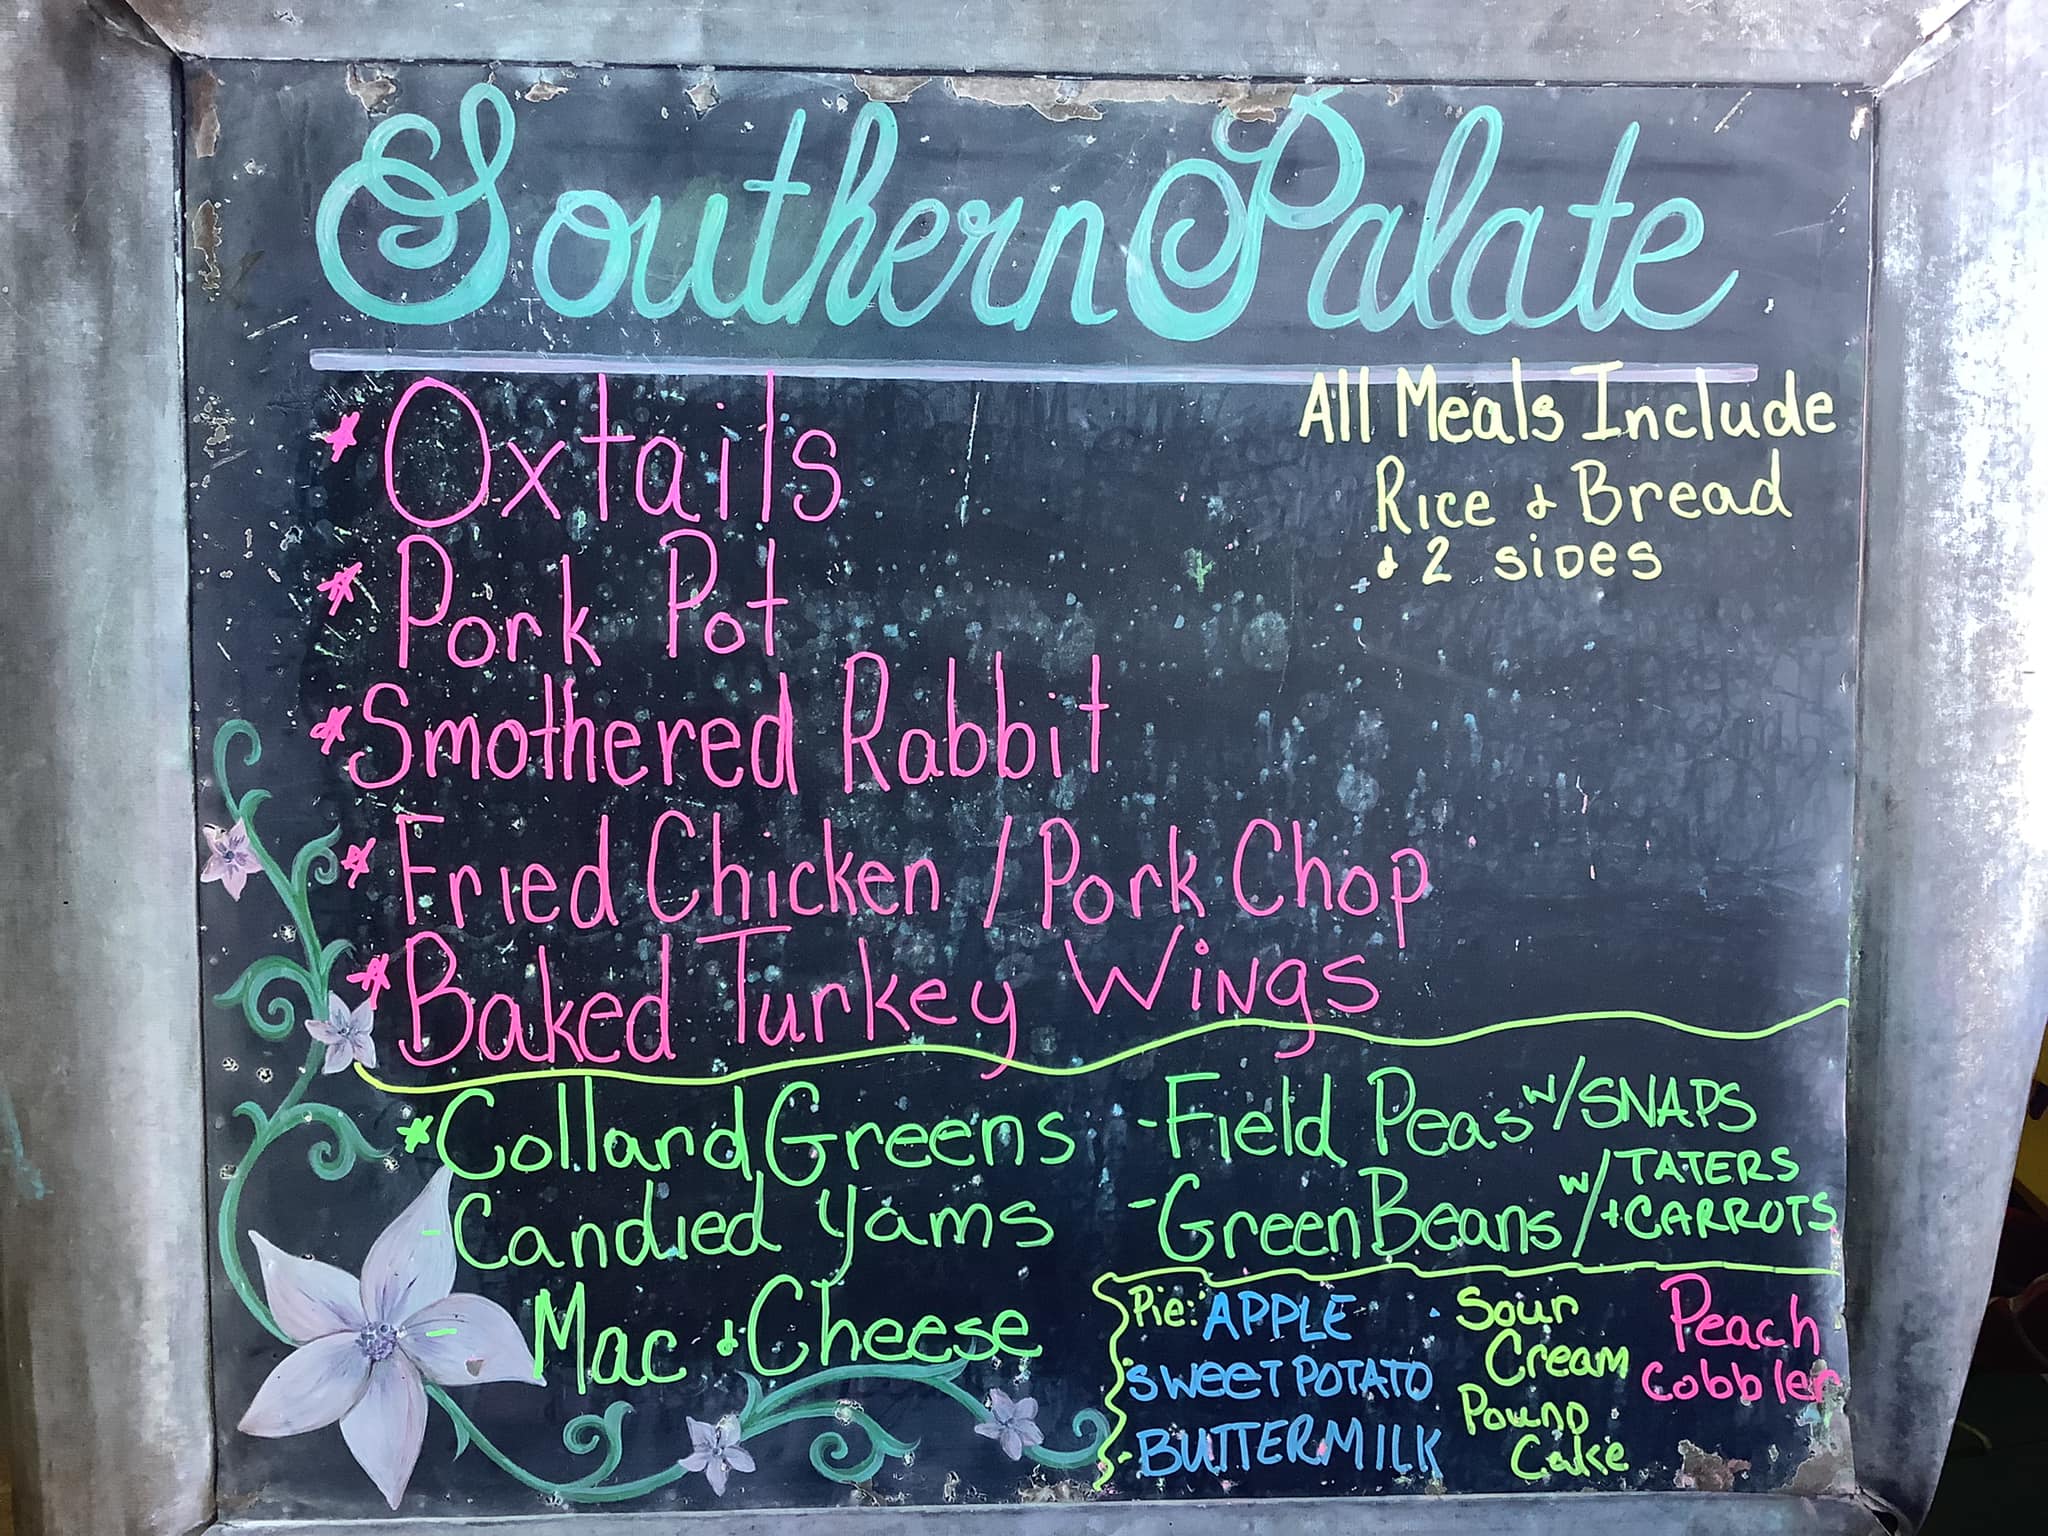 Southern Palate
All Meals Include
Rice & Bread
& 2 sides
* Oxtails
* Pork Pot
* Smothered Rabbit
* Fried Chicken / Pork Chop
* Baked Turkey Wings
* Colland Greens
- Candied Yams
- Mac & Cheese
- Field Peas w/ SNAPS
- Green Beans w/ TATERS
+ CARROTS
Pie: APPLE
SWEET POTATO
BUTTERMILK
Sour
Cream
Pound
Cake
Peach
Cobbler